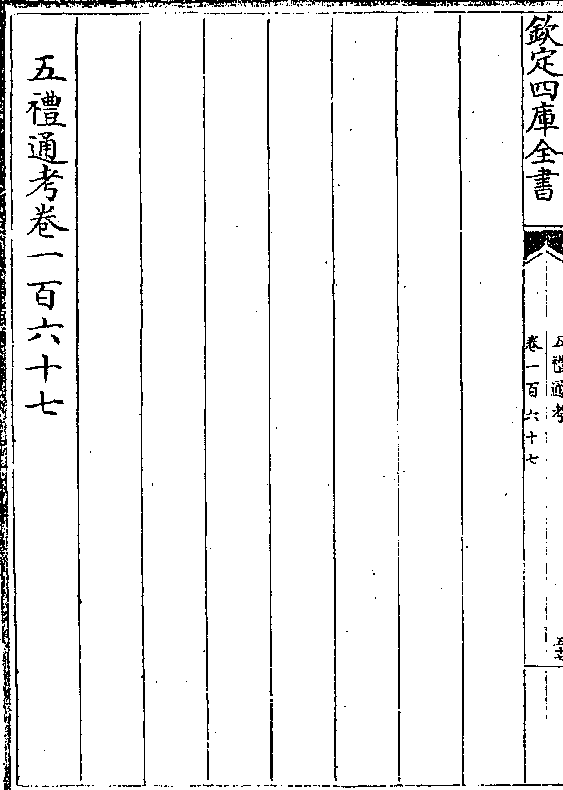 欽定四庫全書
五禮通考
卷一百六十七
五禮通考卷一百六十七